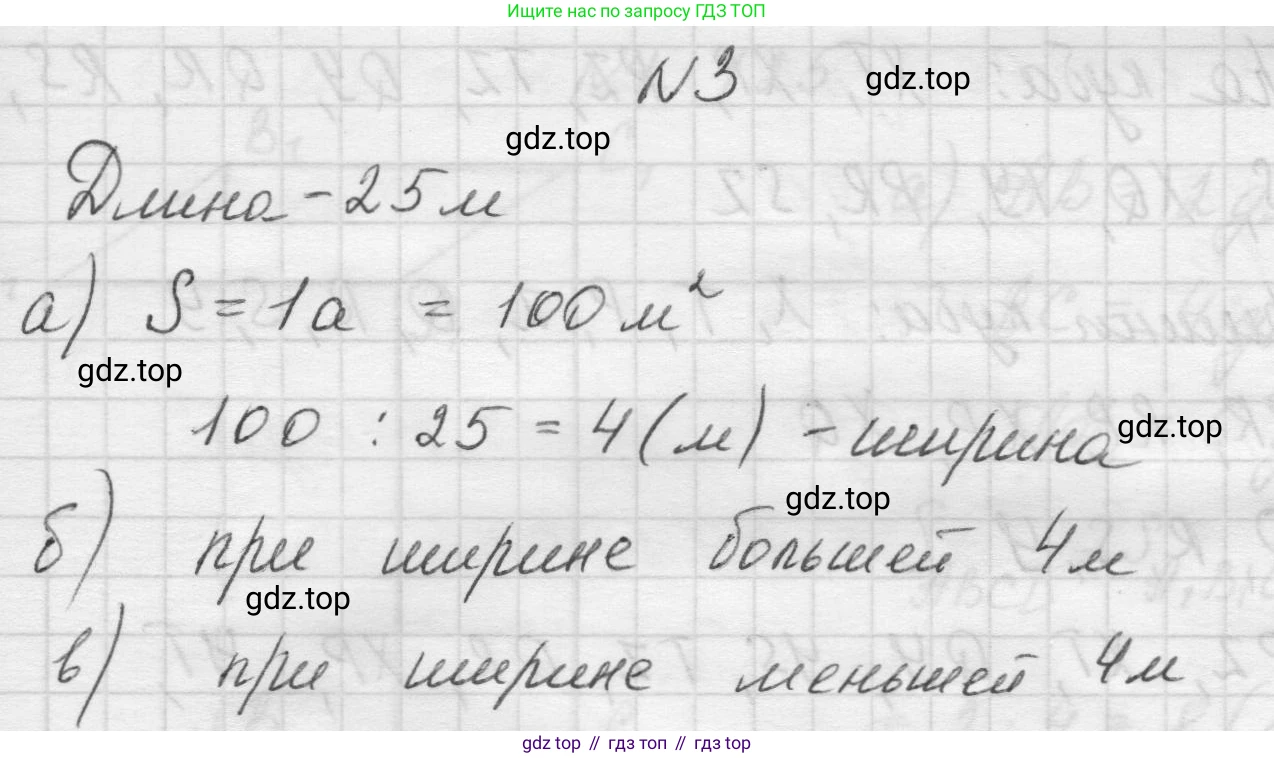 Ищите нас по запросу ГДЗ ТОП
N3
gdz.top
gdz.top
Длина - 25 м
а) S = 1а = 100 м²
gdz.top
100 : 25 = 4 (м) - ширина
gdz.top
gdz.top
б) при ширине большей 4 м
gdz.top
в) при ширине меньшей 4 м
gdz top // гдз топ // gdz top